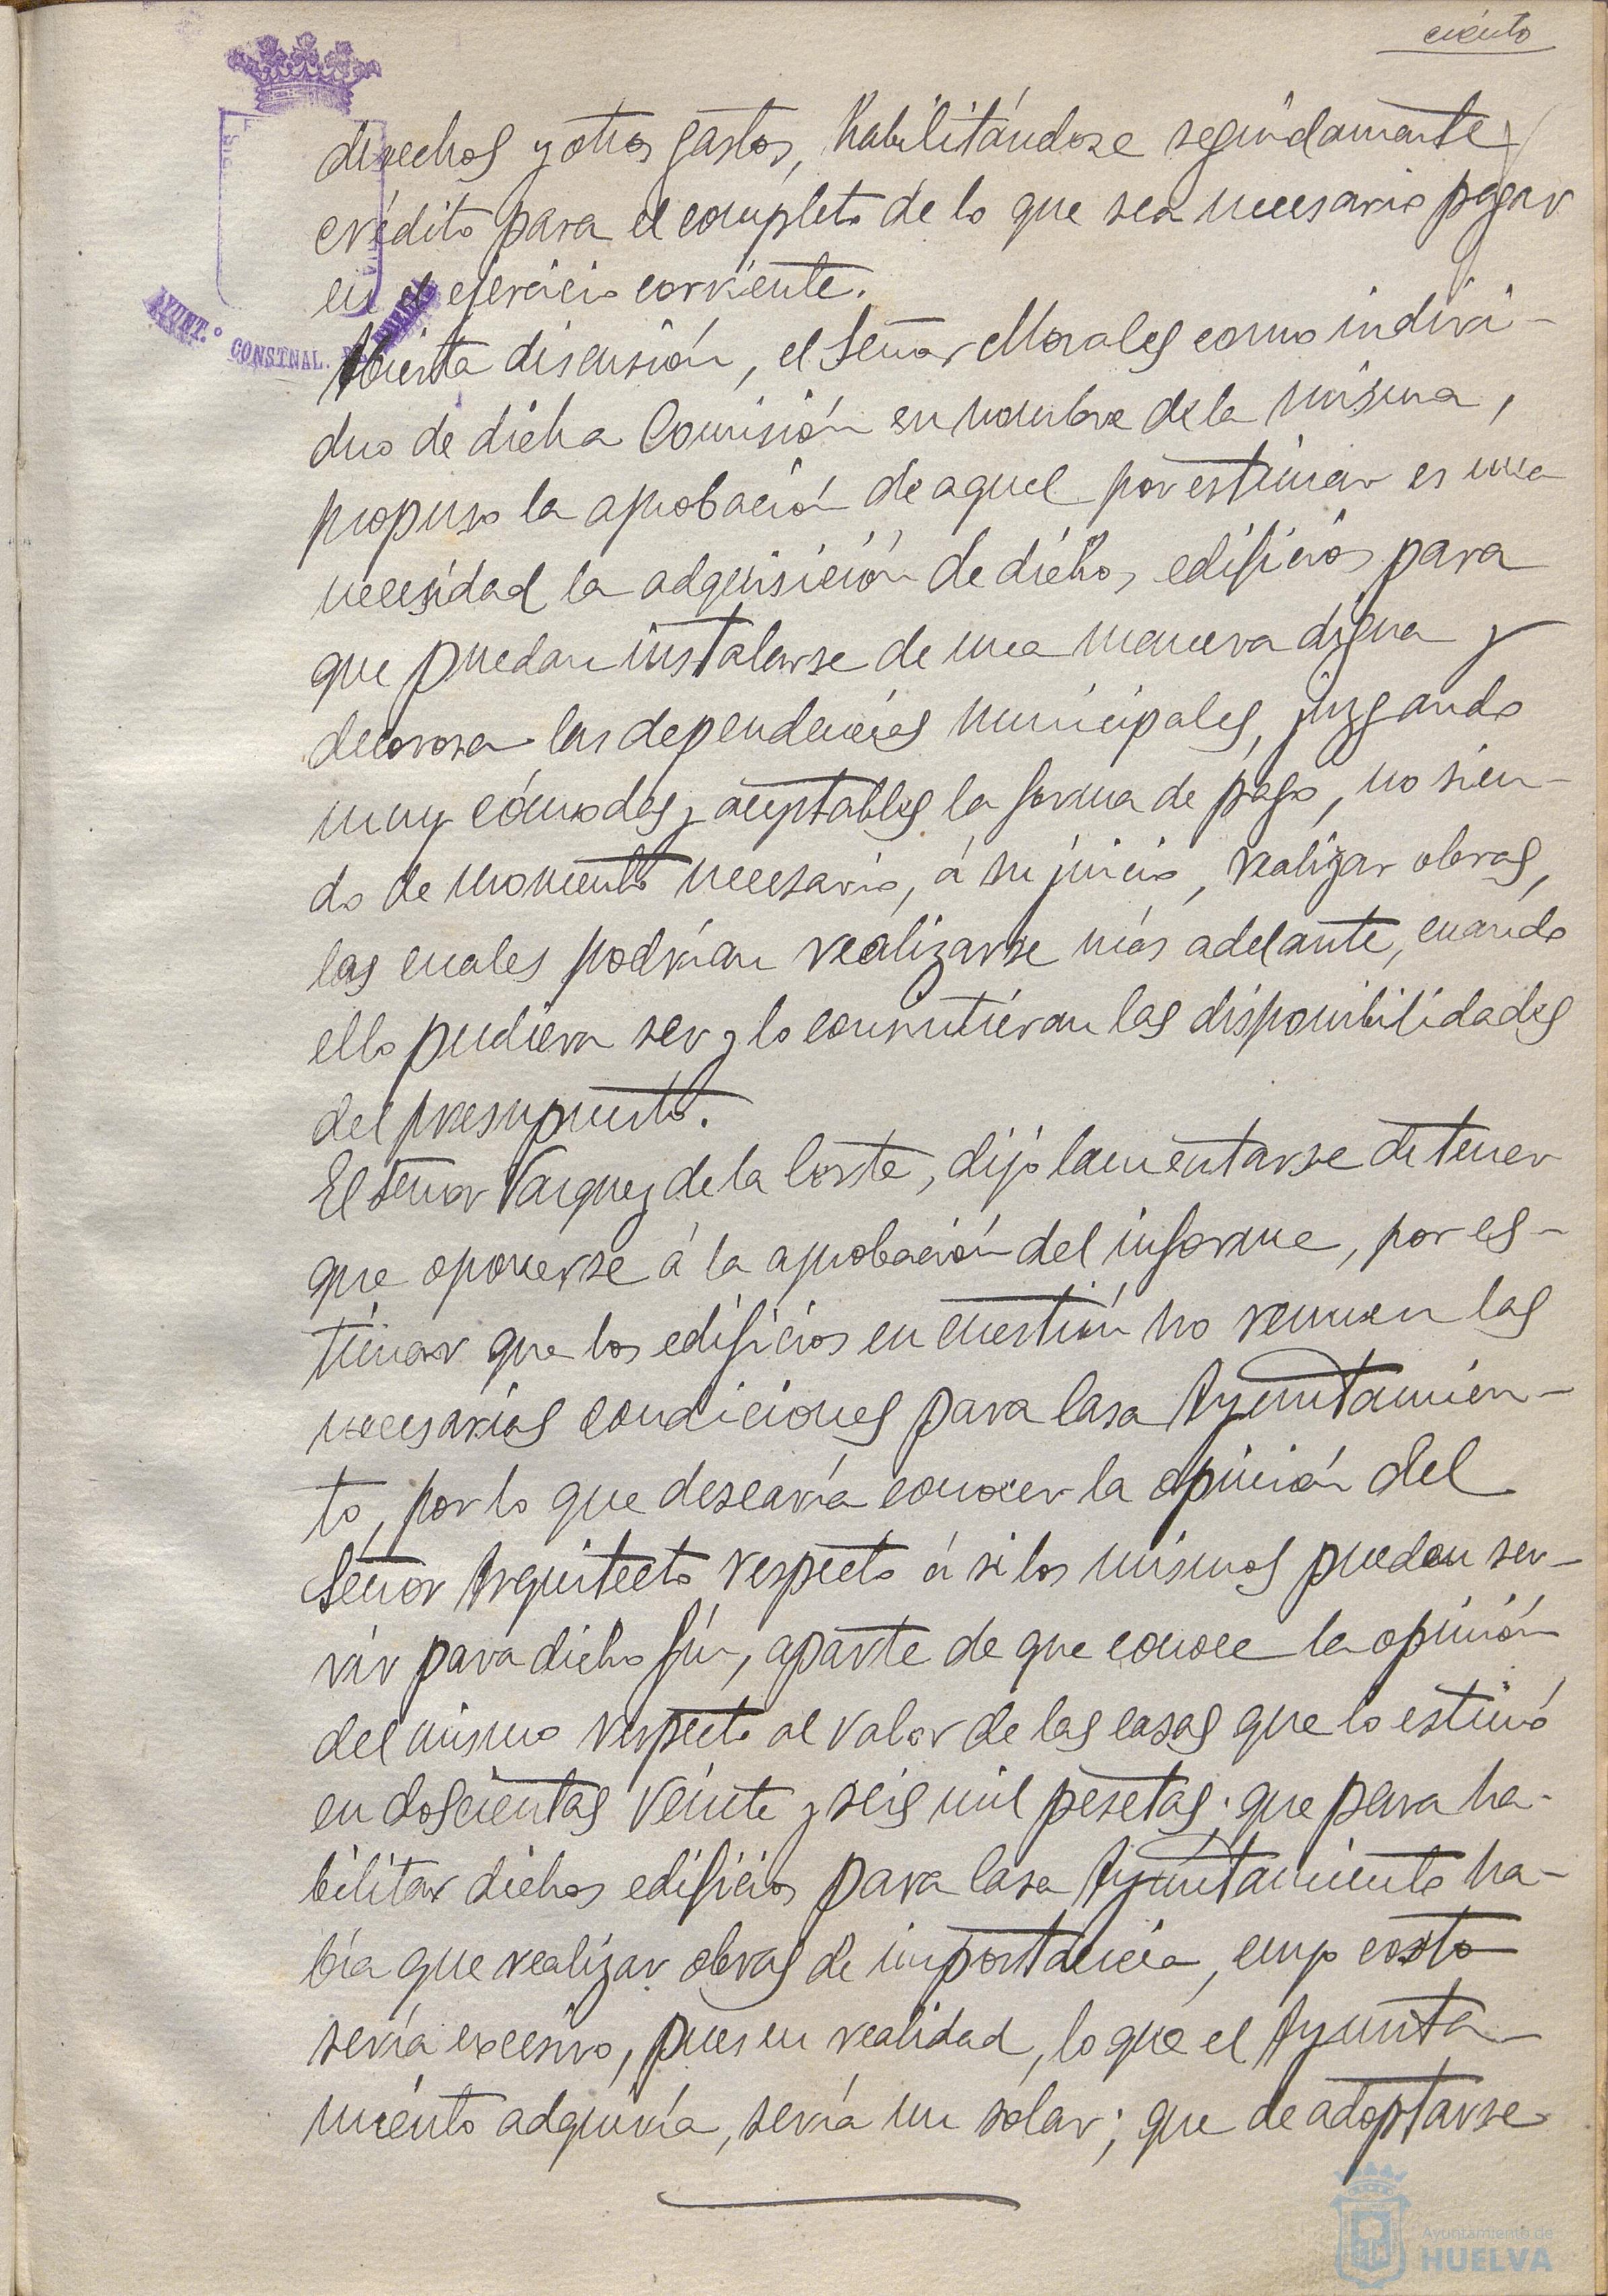 ciento
derechos y otros gastos, habilitándose seguidamente
crédito para el completo de lo que sea necesario pagar
en el ejercicio corriente.
AYUNT.º CONSTNAL. DE HUELVA
Abierta discusión, el Señor Morales como indivi-
duo de dicha Comisión en nombre de la misma,
propuso la aprobación de aquel por estimar es una
necesidad la adquisición de dichos edificios para
que puedan instalarse de una manera digna y
decorosa las dependencias municipales, juzgando
muy cómodas y aceptables la forma de pago, no sien-
do de momento necesario, á su juicio, realizar obras,
las cuales podrían realizarse más adelante, cuando
ello pudiera ser y lo consintieran las disponibilidades
del presupuesto.
El Señor Vazquez de la Corte, dijo lamentarse de tener
que oponerse á la aprobación del informe, por es-
timar que los edificios en cuestión no reunen las
necesarias condiciones para Casa Ayuntamien-
to, por lo que desearía conocer la opinión del
Señor Arquitecto respecto á si los mismos puedan ser-
vir para dicho fin, aparte de que conoce la opinión
del mismo respecto al valor de las casas que lo estimó
en doscientas veinte y seis mil pesetas; que para ha-
bilitar dichos edificios para Casa Ayuntamiento ha-
bía que realizar obras de importancia, cuyo costo
sería excesivo, pues en realidad, lo que el Ayunta-
miento adquiría, sería un solar; que de adoptarse
Ayuntamiento de
HUELVA